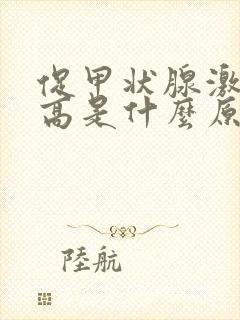 促甲状腺激
高是什麼原
陸航